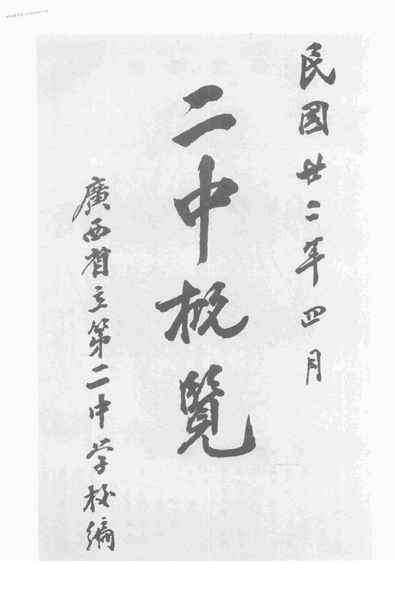 民國廿二年四月
二中概覽
廣西省立第二中学校編